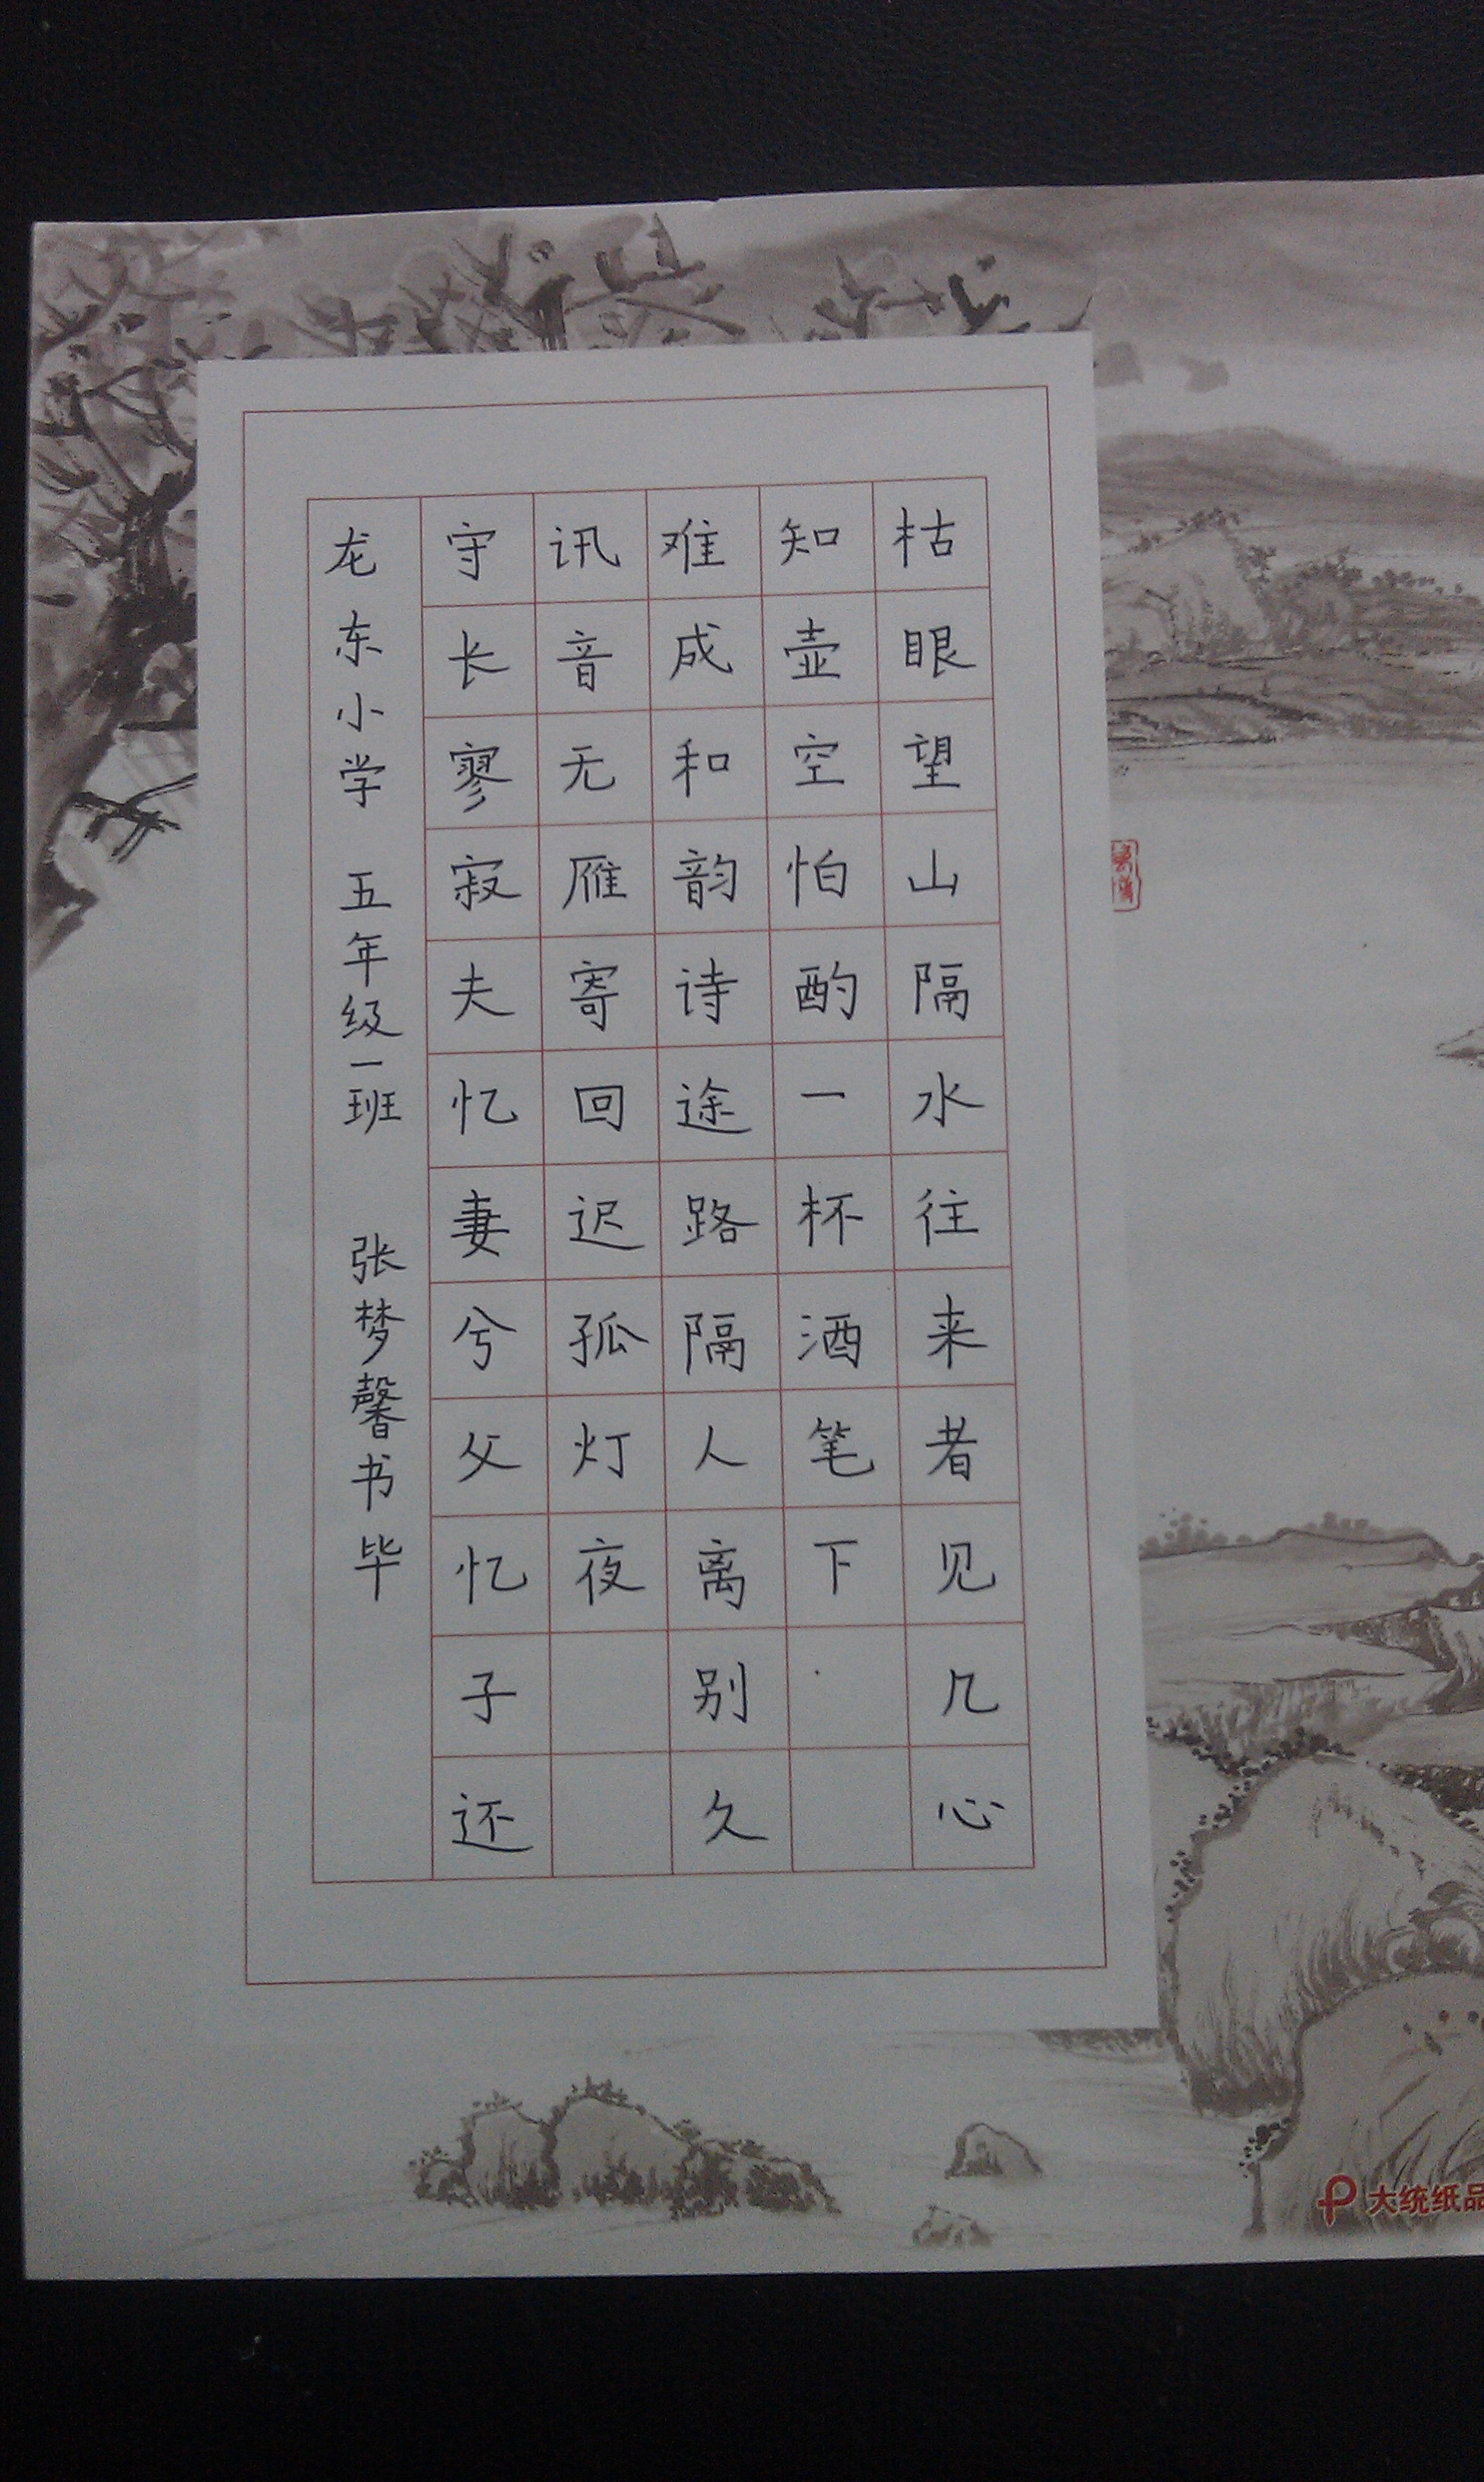 枯眼望山隔水往来者见几心
知壶空怕酌一杯酒笔下
难成和韵诗途路隔人离别久
讯音无雁寄回迟孤灯夜
守长寥寂夫忆妻兮父忆子还
龙东小学 五年级一班 张梦馨书毕
大统纸品